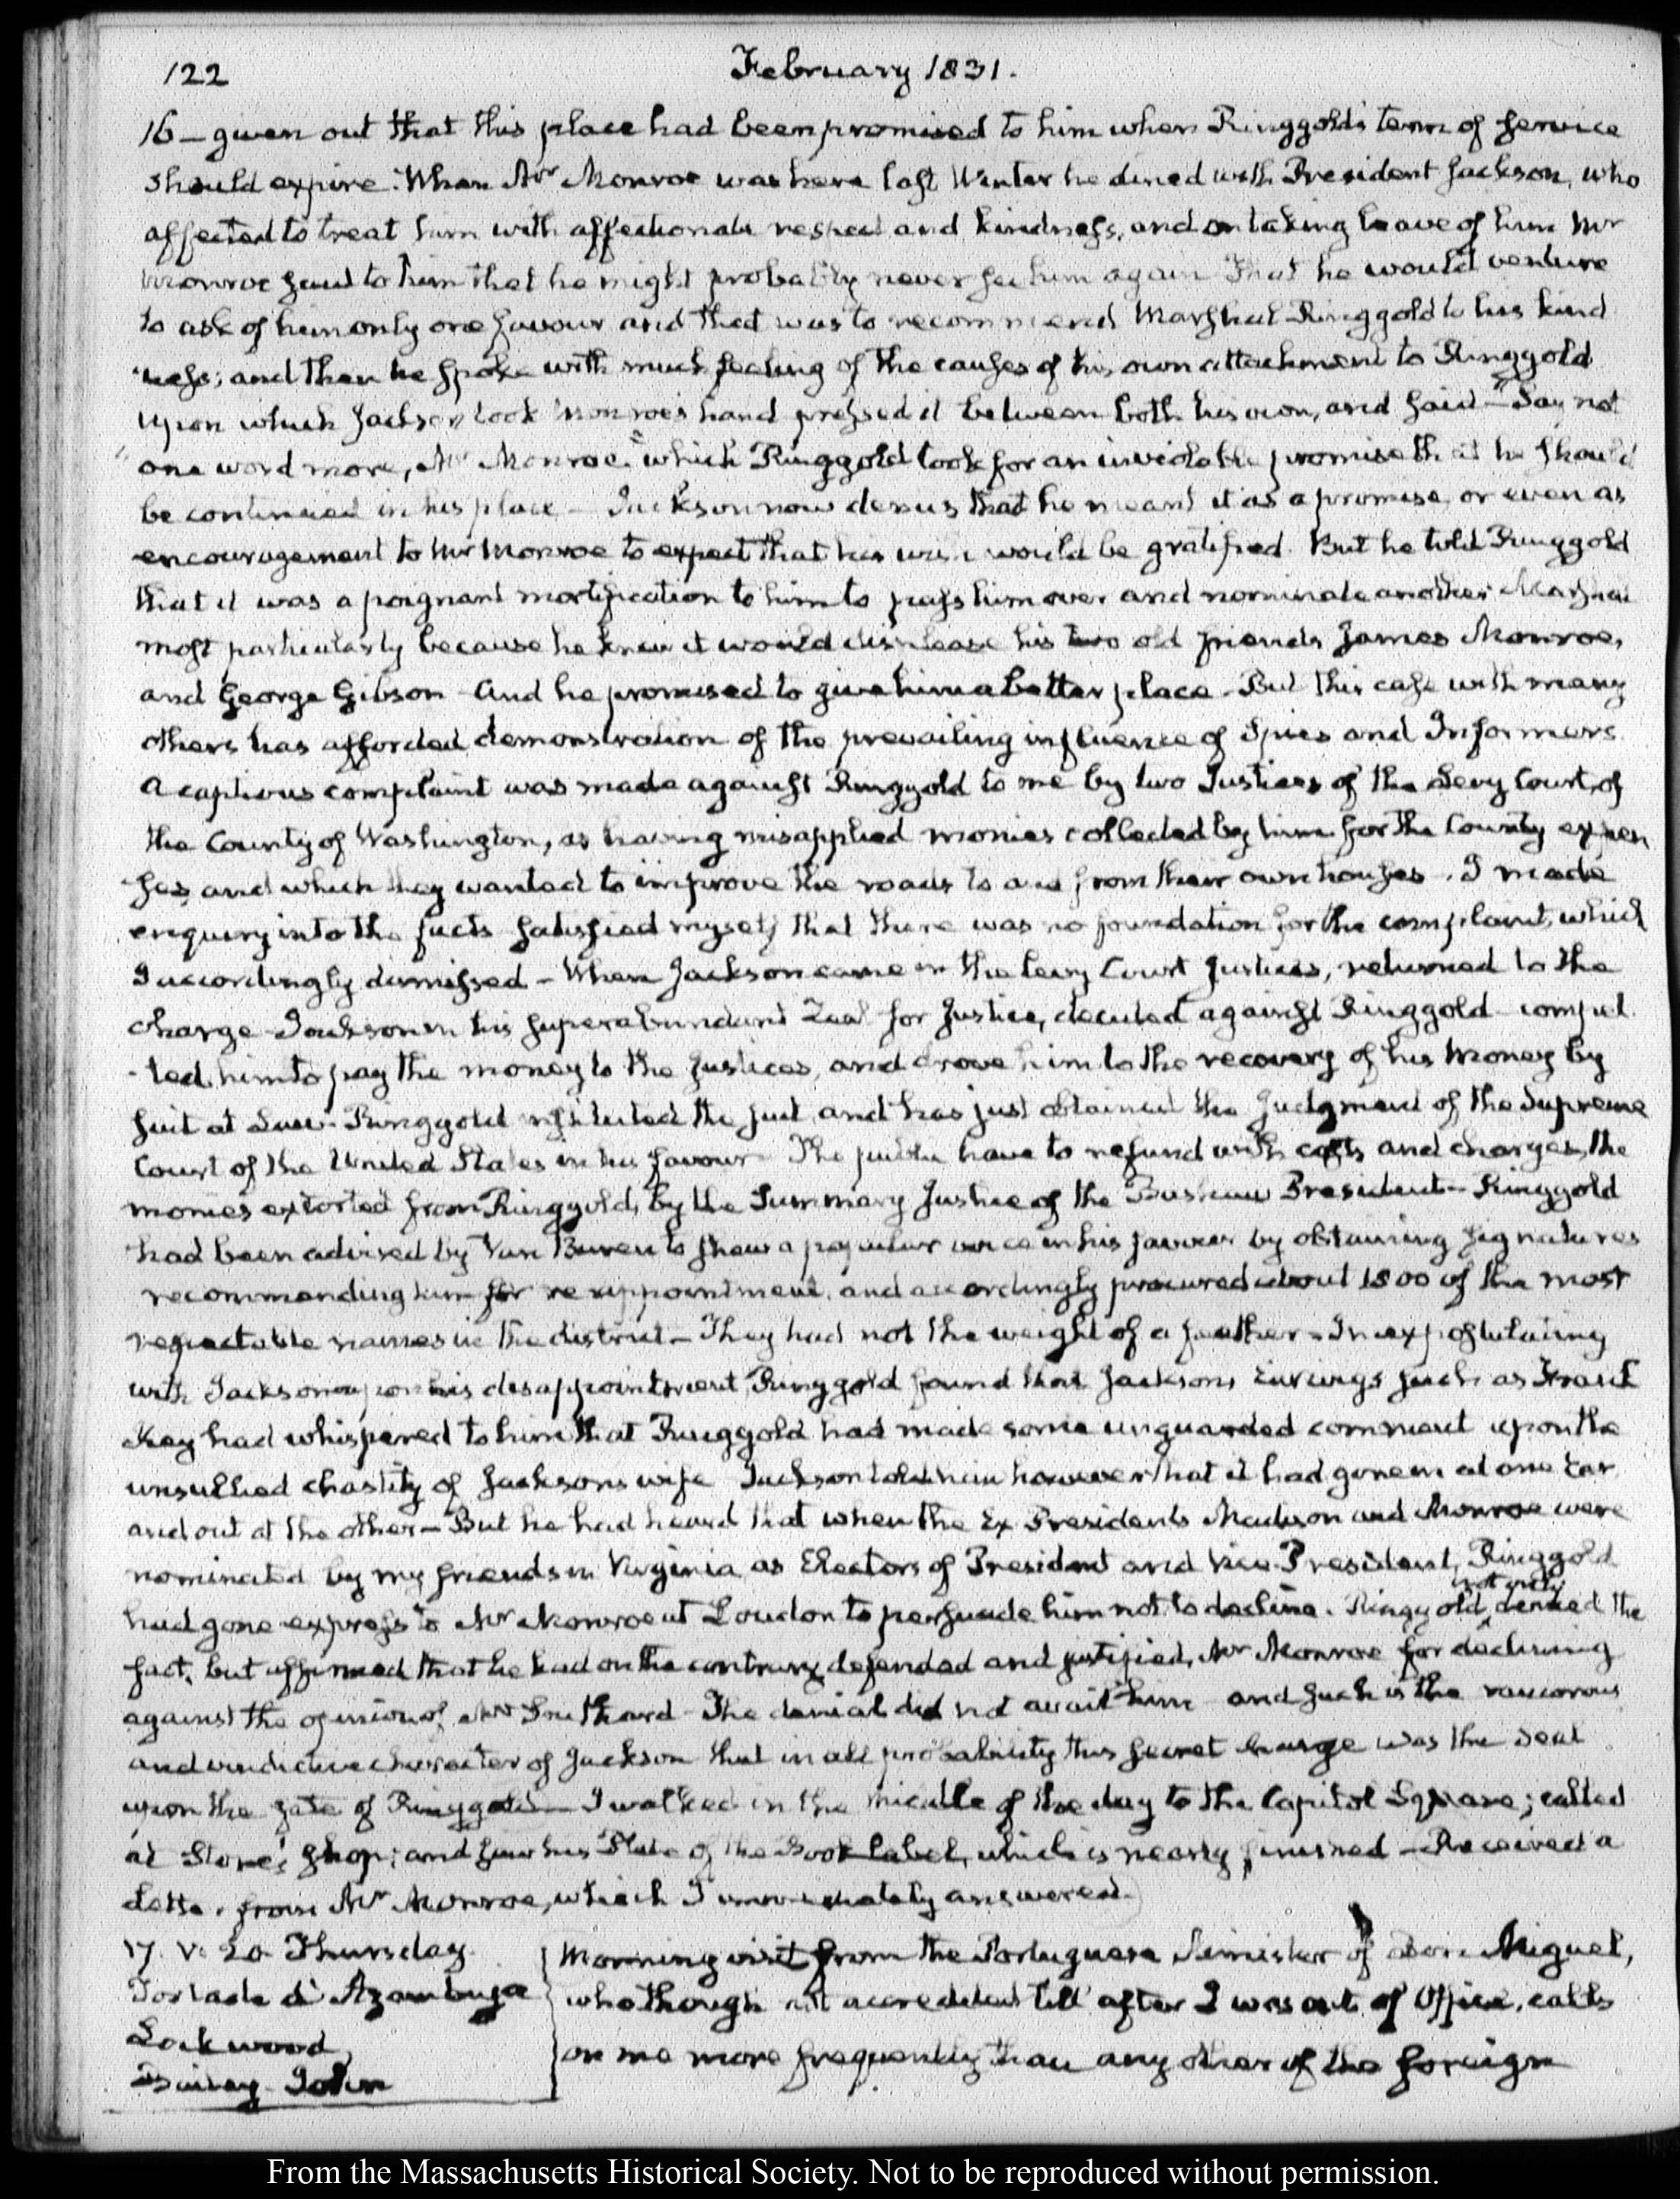 122
February 1831.
16 — given out that this place had been promised to him when Ringgold's term of service
should expire. When Mr Monroe was here last Winter he dined with President Jackson, who
affected to treat him with affectionate respect and kindness, and on taking leave of him Mr
Monroe said to him that he might probably never see him again That he would venture
to ask of him only one favour and that was to recommend Marshal Ringgold to his kind
ness; and then he spoke with much feeling of the causes of his own attachment to Ringgold
upon which Jackson took Monroe's hand pressed it between both his own, and said — "Say not
"one word more, Mr Monroe." which Ringgold took for an inviolable promise that he should
be continued in his place — Jackson now denies that he meant it as a promise, or even as
encouragement to Mr Monroe to expect that his wish would be gratified. But he told Ringgold
that it was a poignant mortification to him to pass him over and nominate another Marshal
most particularly because he knew it would displease his two old friends James Monroe,
and George Gibson — And he promised to give him a better place — But this case with many
others has afforded demonstration of the prevailing influence of Spies and Informers.
A captious complaint was made against Ringgold to me by two Justices of the Levy Court, of
the County of Washington, as having misapplied monies collected by him for the County expen
ses and which they wanted to improve the roads to and from their own houses. I made
enquiry into the facts satisfied myself that there was no foundation for the complaint, which
I accordingly dismissed — When Jackson came in the Levy Court Justices, returned to the
charge — Jackson in his superabundant Zeal for Justice, decided against Ringgold — compel
-led him to pay the money to the Justices, and drove him to the recovery of his Money by
suit at Law — Ringgold instituted the suit and has just obtained the Judgment of the Supreme
Court of the United States in his favour — The public have to refund with costs and charges, the
monies extorted from Ringgold, by the Summary Justice of the Bashaw President — Ringgold
had been advised by Van Buren to shew a popular voice in his favour by obtaining signatures
recommending him for re appointment, and accordingly procured about 1800 of the most
respectable names in the district — They had not the weight of a feather — In expostulating
with Jackson upon his disappointment, Ringgold found that Jackson's Earwigs such as Frank
Key had whispered to him that Ringgold had made some unguarded comment upon the
unsullied chastity of Jackson's wife Jackson told him however that it had gone in at one Ear
and out at the other — But he had heard that when the Ex Presidents Madison and Monroe were
nominated by my friends in Virginia as Electors of President and Vice-President, Ringgold
had gone express to Mr Monroe at Loudon to persuade him not to decline. Ringgold not only denied the
fact, but affirmed that he had on the contrary defended and justified, Mr Monroe for declining
against the opinion of Mr Southard — The denial did not avail him — and such is the rancorous
and vindictive character of Jackson that in all probability this secret charge was the seal
upon the fate of Ringgold — I walked in the middle of the day to the Capitol Square; called
at Stone's shop; and saw his Plate of the Book label, which is nearly finished — Received a
Letter from Mr Monroe, which I immediately answered.
17. V. 20. Thursday.
Torlade d' Azambuja
Lockwood,
Bailey John
Morning visit from the Portuguese Minister of Don Miguel,
who though not accredited till after I was out of Office, calls
on me more frequently than any other of the foreign
From the Massachusetts Historical Society. Not to be reproduced without permission.